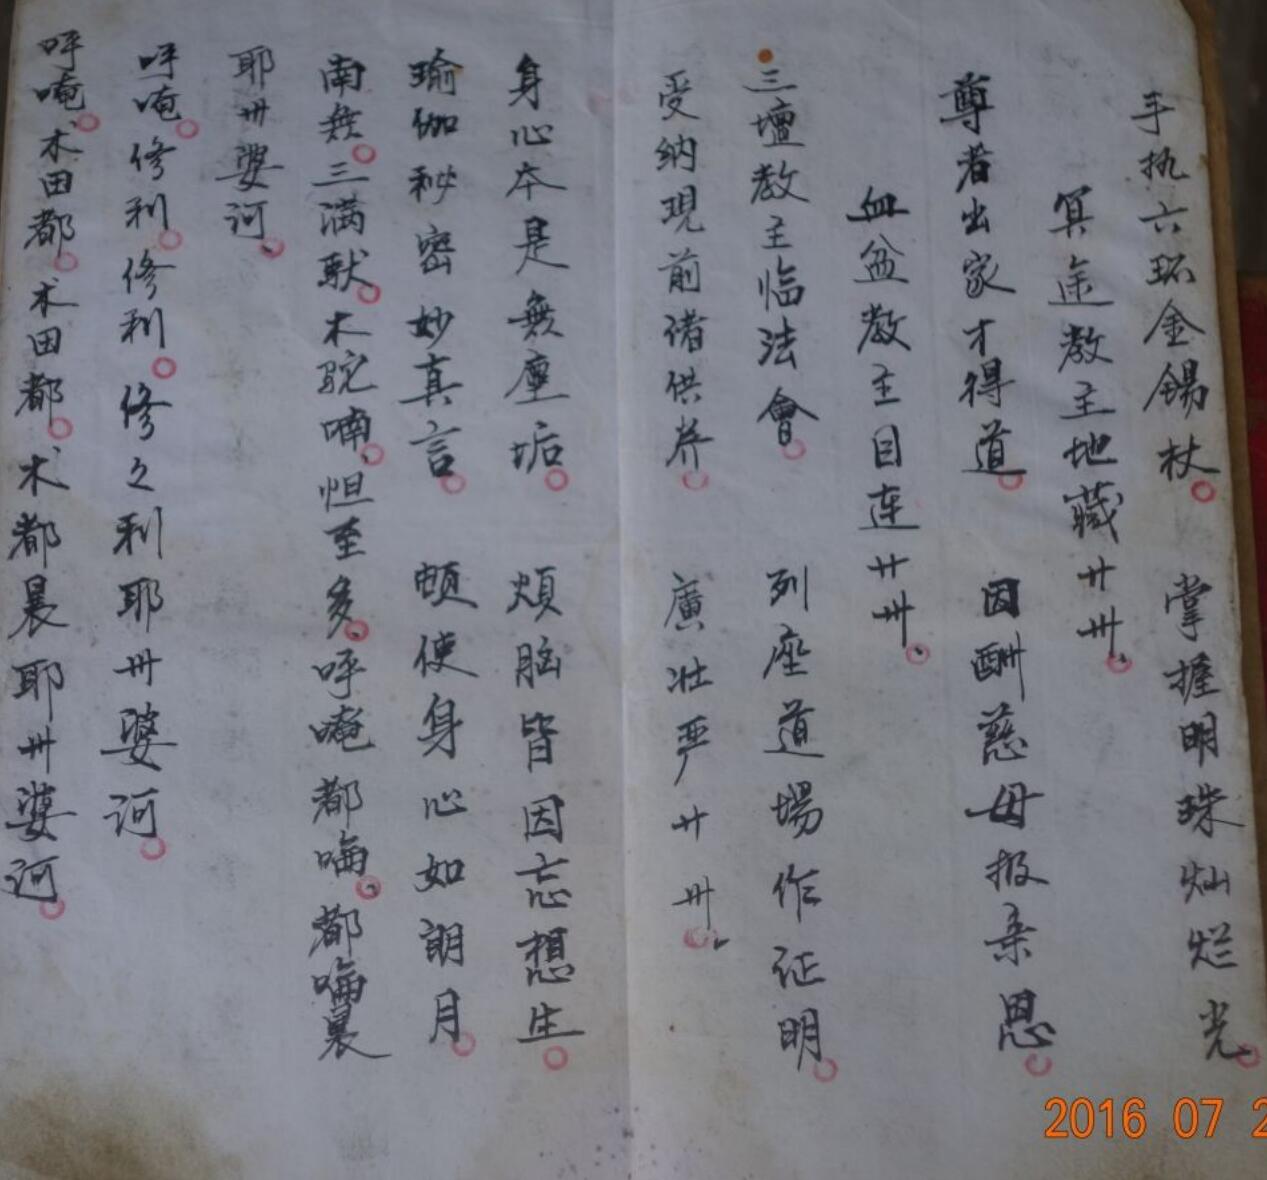 手执六环金锡杖 掌握明珠灿烂光
冥途教主地藏廾卅
尊者出家才得道 因酬慈母报亲恩
血盆教主目连廾卅
三壇教主临法會 列座道場作证明
受纳現前诸供养 廣壮严廾卅
身心本是無塵垢 煩脑皆因忘想生
瑜伽秘密妙真言 頓使身心如朗月
南無三满馱木驼喃怛至多呼唵都嚕都嚕晨
耶卅婆诃
呼唵修利修利修之利耶卅婆诃
呼唵木田都木田都木都晨耶卅婆诃
2016 07 2